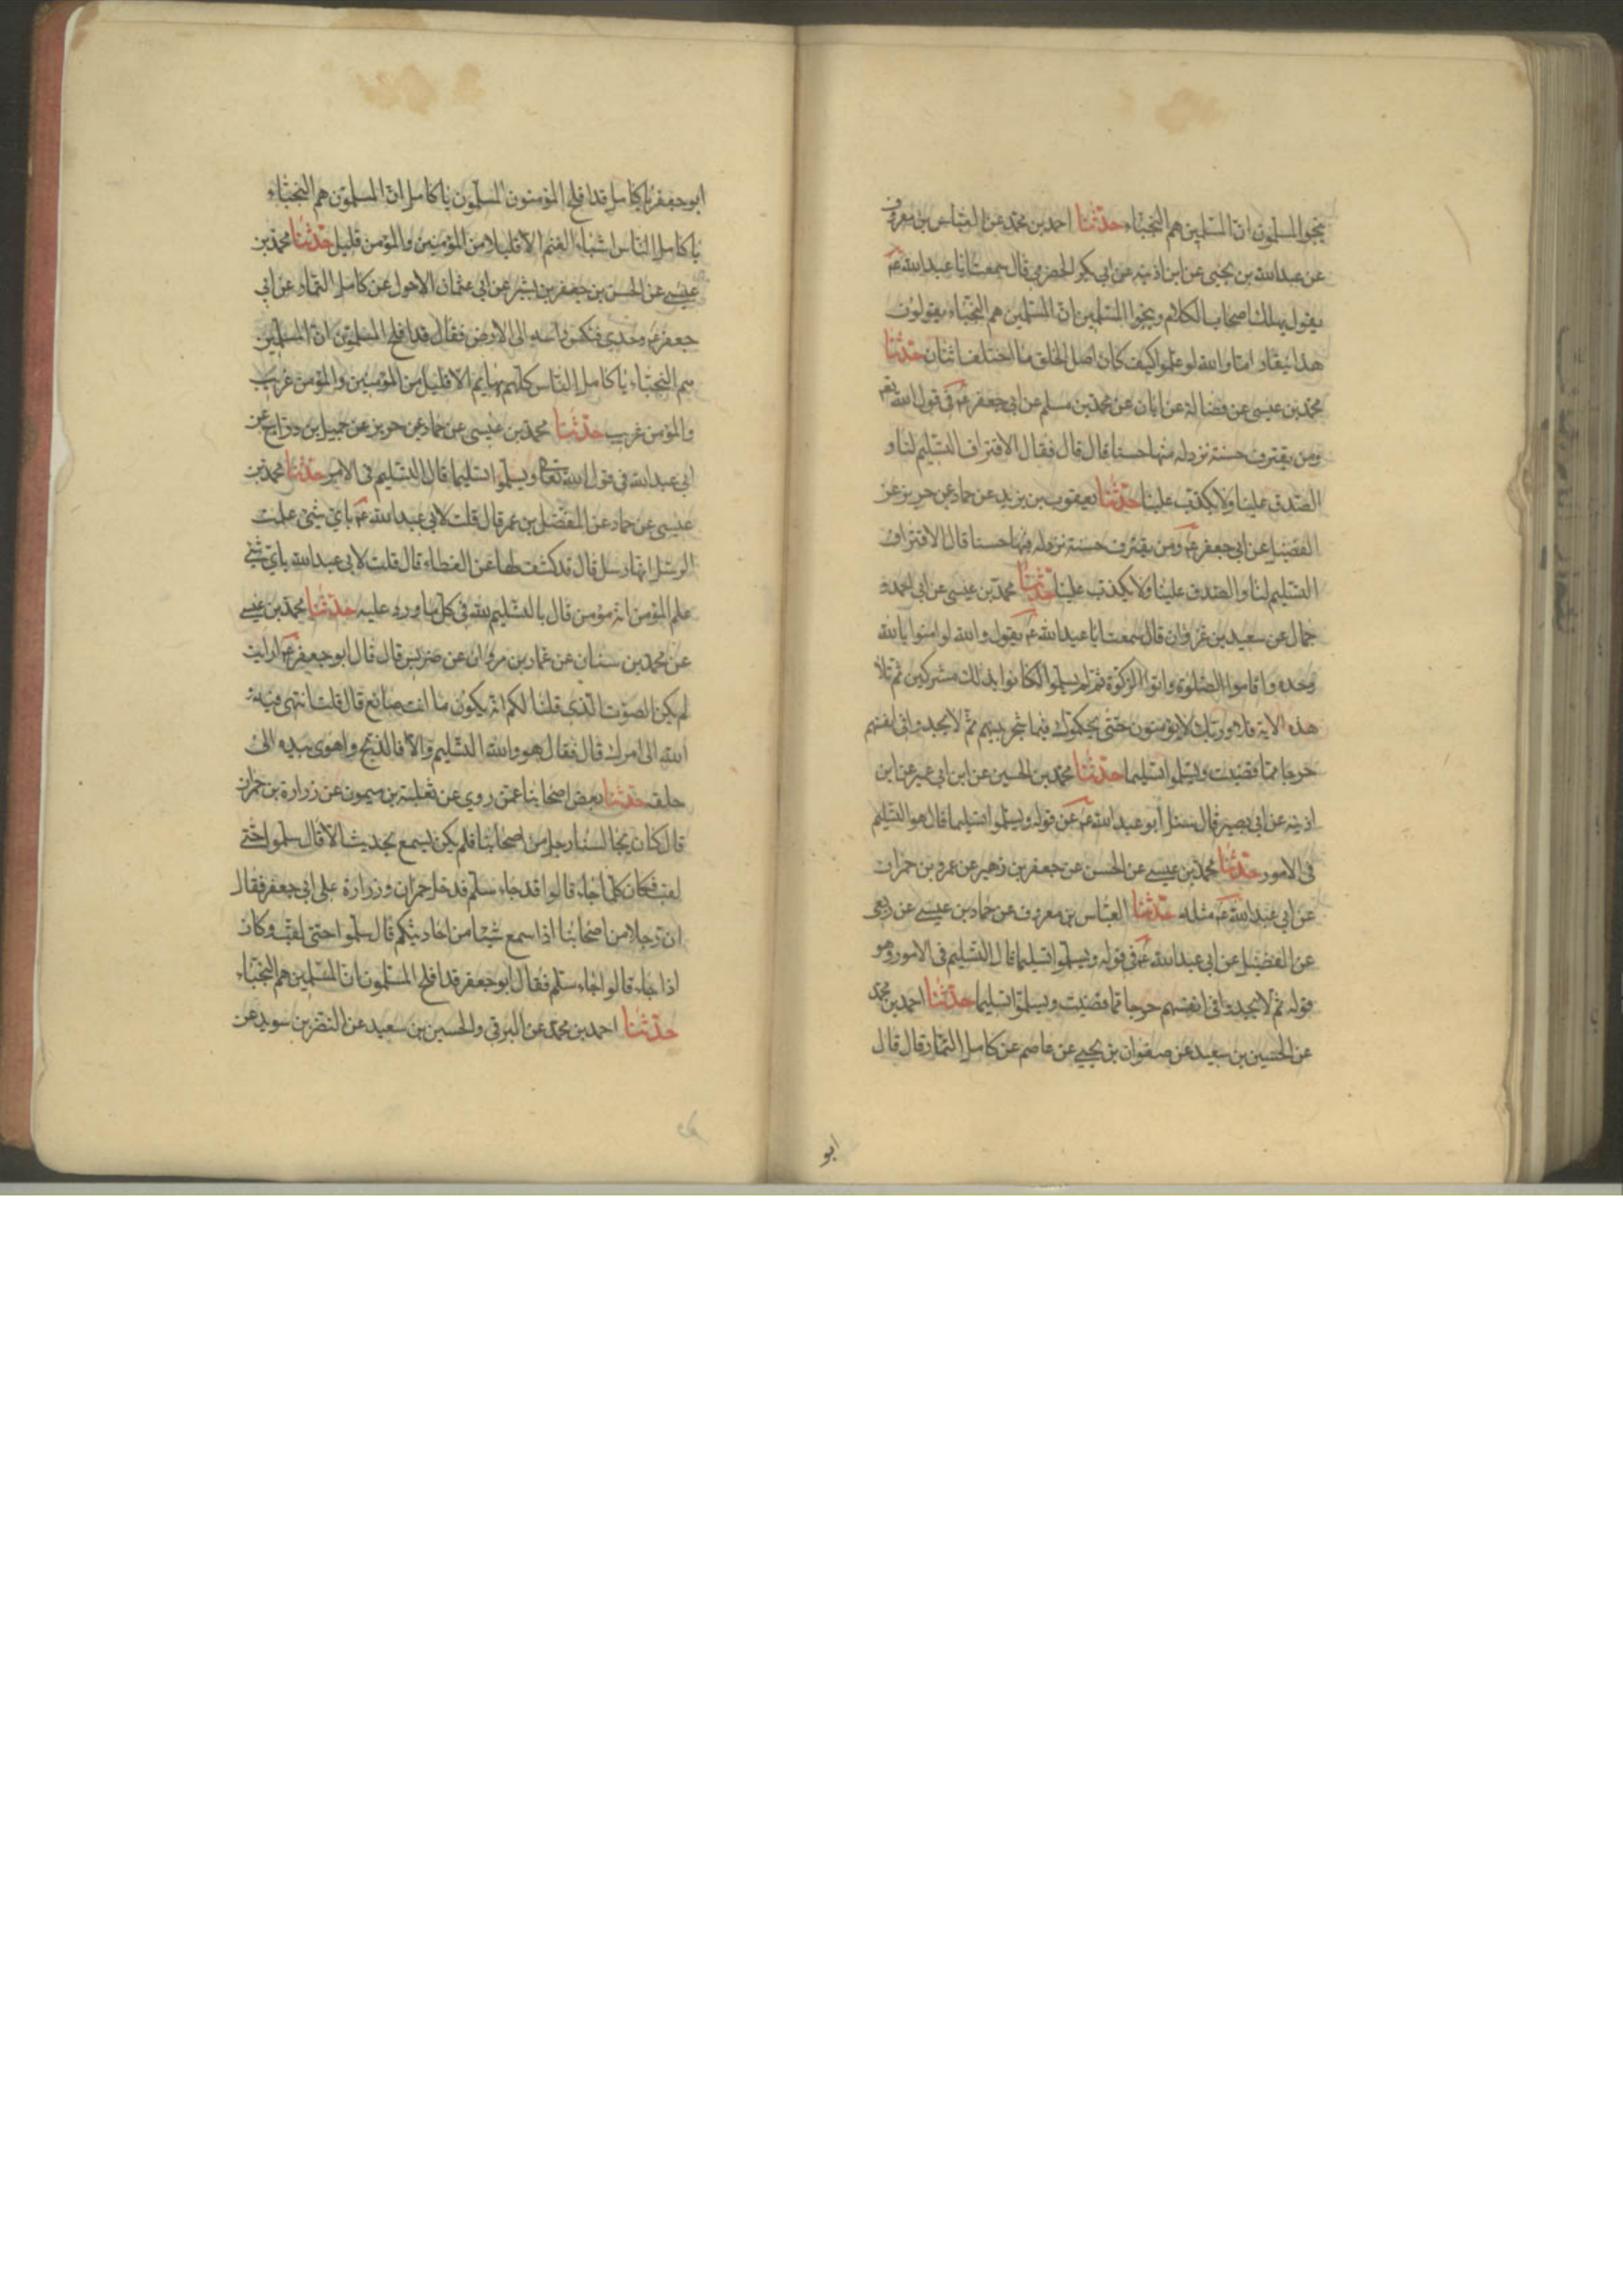 ينجوا المسلمون ان المسلمين هم النجباء حدثنا احمد بن محمد عن العباس بن معروف
عن عبد الله بن يحيى عن ابن اذينه عن ابى بكر الحضرمى قال سمعت ابا عبد الله عم
يقول يهلك اصحاب الكلام وينجوا المسلمين ان المسلمين هم النجباء يقولون
هذا ينقاد اما والله لو علموا كيف كان اصل الخلق ما اختلف اثنان حدثنا
محمد بن عيسى عن فضالة عن ابان عن محمد بن مسلم عن ابى جعفر عم فى قول الله تعم
ومن يقترف حسنة نزد له منها حسنا قال قال فقال الاقتراف التسليم لنا و
الصدق علينا ولا يكذب علينا حدثنا يعقوب بن يزيد عن حماد عن حريز عن
الفضيل عن ابى جعفر عم ومن يقترف حسنة نزد له فيها حسنا قال الاقتراف
التسليم لنا والصدق علينا ولا يكذب علينا حدثنا محمد بن عيسى عن ابى احمد و
جمال عن سعيد بن غزوان قال سمعت ابا عبد الله عم يقول والله لو امنوا بالله
وحده واقاموا الصلوة واتوا الزكوة ثم لم يسلموا لكانوا بذلك مشركين ثم تلا
هذه الاية فلا وربك لا يؤمنون حتى يحكموك فيما شجر بينهم ثم لا يجدوا فى انفسهم
حرجا مما قضيت ويسلموا تسليما حدثنا محمد بن الحسين عن ابن ابى عمير عن ابن
اذينه عن ابى بصير قال سئل ابو عبد الله عم عن قوله ويسلموا تسليما قال هو التسليم
فى الامور حدثنا محمد بن عيسى عن الحسن عن جعفر بن زهير عن عمرو بن حمران
عن ابى عبد الله عم مثله حدثنا العباس بن معروف عن حماد بن عيسى عن ربعى
عن الفضيل عن ابى عبد الله عم فى قوله ويسلموا تسليما قال التسليم فى الامور وهو
قوله ثم لا يجدوا فى انفسهم حرجا مما قضيت ويسلموا تسليما حدثنا احمد بن محمد
عن الحسين بن سعيد عن صفوان بن يحيى عن عاصم عن كامل التمار قال قال
ابو
ابو جعفر يا كامل قد افلح المؤمنون المسلمون يا كامل ان المسلمون هم النجباء
يا كامل الناس اشباه الغنم الا قليلا من المؤمنين والمؤمن قليل حدثنا محمد بن
عيسى عن الحسن بن جعفر بن بشر عن ابى عثمان الاحول عن كامل التمار عن ابى
جعفر عم وحدى فنكس راسه الى الارض فقال قد افلح المسلمون ان المسلمين
هم النجباء يا كامل الناس كلهم بهايم الا قليل من المؤمنين والمؤمن غريب
والمؤمن غريب حدثنا محمد بن عيسى عن حماد عن حريز عن جميل بن دراج عن
ابى عبد الله فى قول الله تعالى ويسلموا تسليما قال التسليم فى الامر حدثنا محمد بن
عيسى عن حماد عن المفضل بن عمر قال قلت لابى عبد الله عم باى شئ علمت
الرسل انها رسل قال قد كشف لها عن الغطاء قال قلت لابى عبد الله باى شئ
علم المؤمن انه مؤمن قال بالتسليم لله فى كل ما ورد عليه حدثنا محمد بن عيسى
عن محمد بن سنان عن عمار بن مروان عن ضريس قال قال ابو جعفر عم ارايت
لم يكن الصوت الذى قلنا لكم انه يكون ما انت صانع قال قلت انتهى فيه
الله الى امرك قال فقال هو والله التسليم والا فالذبح واهوى بيده الى
حلقه حدثنا بعض اصحابنا عمن روى عن ثعلبة بن ميمون عن زرارة بن حمران
قال كان يجالسنا رجل من اصحابنا فلم يكن يسمع بحديث الا قال سلموا حتى
لقب فكان كلما جاء قالوا قد جاء سلم فدخل حمران وزرارة على ابى جعفر فقال
ان رجلا من اصحابنا اذا سمع شيئا من احاديثكم قال سلموا حتى لقب وكان
اذا جاء قالوا جاء سلم فقال ابو جعفر قد افلح المسلمون ان المسلمين هم النجباء
حدثنا احمد بن محمد عن البرقى والحسين بن سعيد عن النضر بن سويد عن